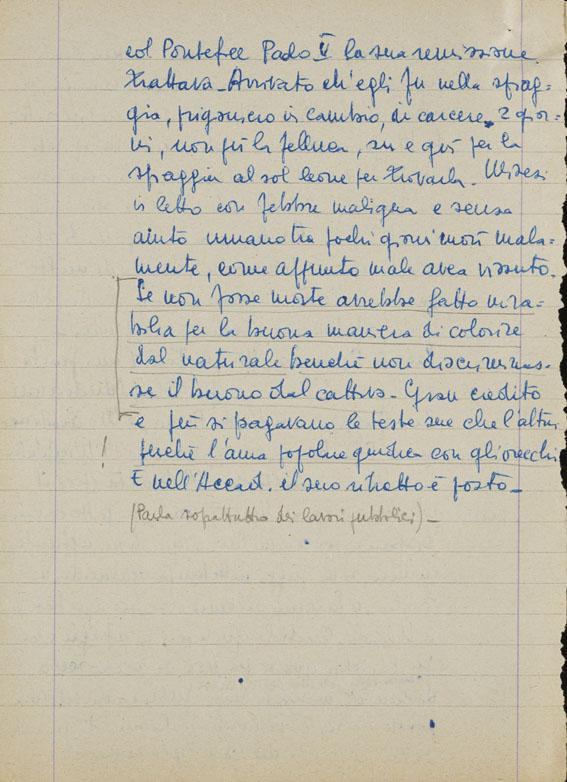 col Pontefice Paolo V la sua remissione
trattava - Arrivato ch'egli fu nella spiag=
gia, prigoniero in cambio, in carcere, 2 gior=
ni, non più la felluca, su e giù per la
spiaggia al sol leone per trovarla. Misesi
in letto con febbre maligna e senza
aiuto umano tra pochi giorni morì mala=
mente, come appunto male avea vissuto.
Se non fosse morto avrebbe fatto mira=
bilia per la buona maniera di colorire
dal naturale benchè non discernes=
se il buono dal cattivo - Gran credito
e più si pagavano le teste sue che l'altrui
! perchè l'aura popolare giudica con gli orecchi
E nell'Accad. il suo ritratto è posto -
(Parla soprattutto dei lavori pubblici) -